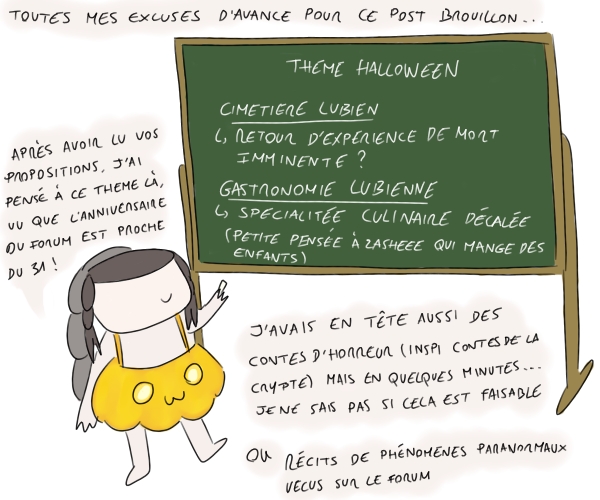 TOUTES MES EXCUSES D'AVANCE POUR CE POST BROUILLON...
THEME HALLOWEEN
CIMETIERE LUBIEN
↳ RETOUR D'EXPERIENCE DE MORT
IMMINENTE ?
GASTRONOMIE LUBIENNE
↳ SPECIALITÉE CULINAIRE DÉCALÉE
(PETITE PENSÉE À ZASHEEE QUI MANGE DES
ENFANTS)
APRÈS AVOIR LU VOS
PROPOSITIONS, J'AI
PENSÉ À CE THEME LÀ,
VU QUE L'ANNIVERSAIRE
DU FORUM EST PROCHE
DU 31 !
J'AVAIS EN TÊTE AUSSI DES
CONTES D'HORREUR (INSPI CONTES DE LA
CRYPTE) MAIS EN QUELQUES MINUTES...
JE NE SAIS PAS SI CELA EST FAISABLE
OU RÉCITS DE PHÉNOMENES PARANORMAUX
VECUS SUR LE FORUM